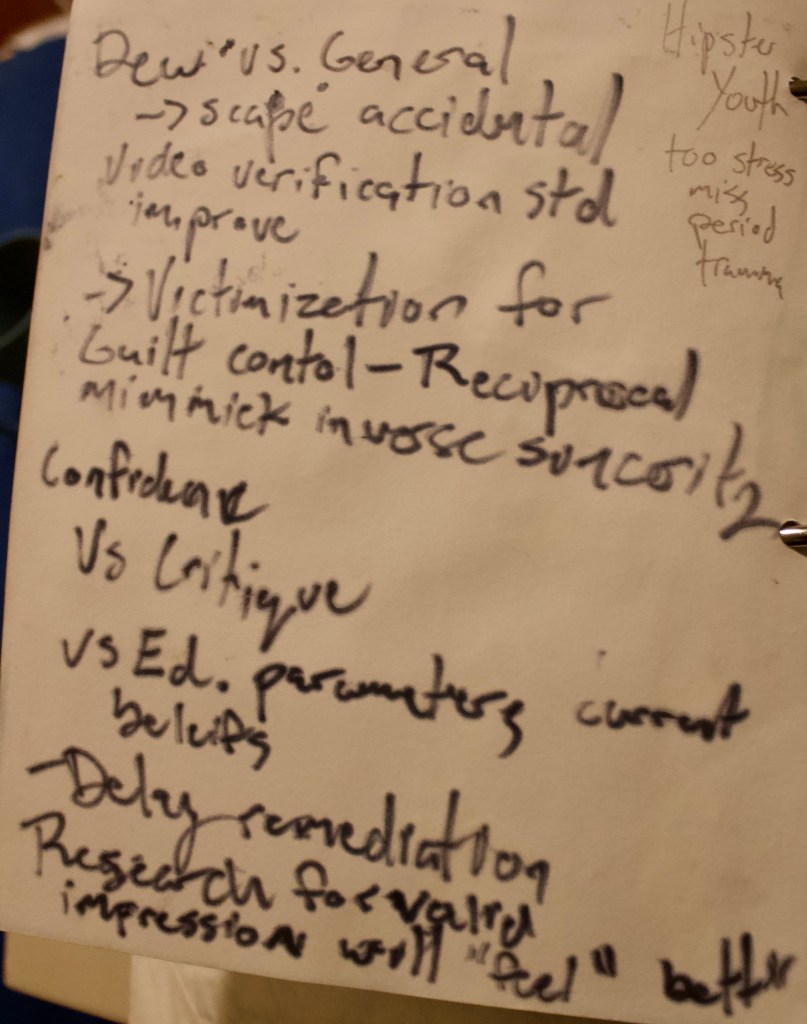 Dew vs. General
-> scape accidental
Video verification std
improve
-> Victimization for
Guilt contol - Reciprocal
mimmick inverse
Confidence
Vs Critique
vs Ed. parameters current
beleifs
- Delay remediation
Research for valid
impression will "feel" better
Hipster
Youth
too stress
miss
period
trauma